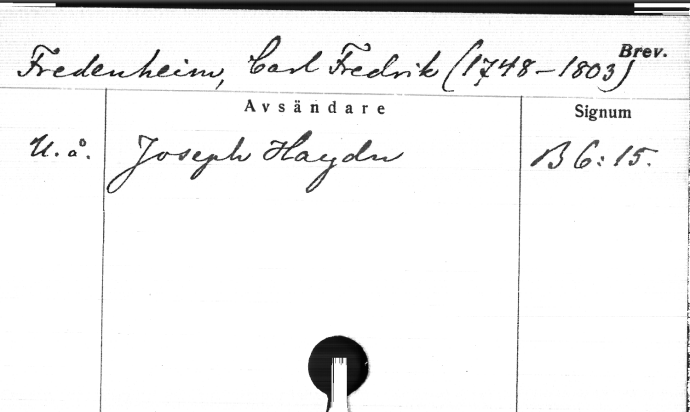 Brev.
Fredenheim, Carl Fredrik (1748–1803)
Avsändare
Signum
U. å. Joseph Haydn B 6:15.